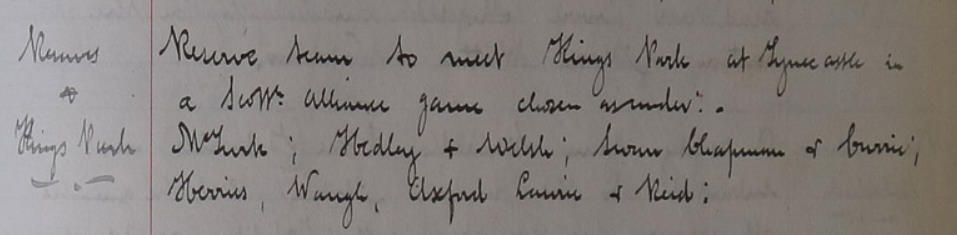 Reserves
&
Kings Park
Reserve team to meet Kings Park at Tynecastle in
a Scott. Alliance game chosen as under: -
McTurk; Hedley & Welsh; Swan Chapman & Currie;
Herries, Waugh, Elxford Laurie & Reid: